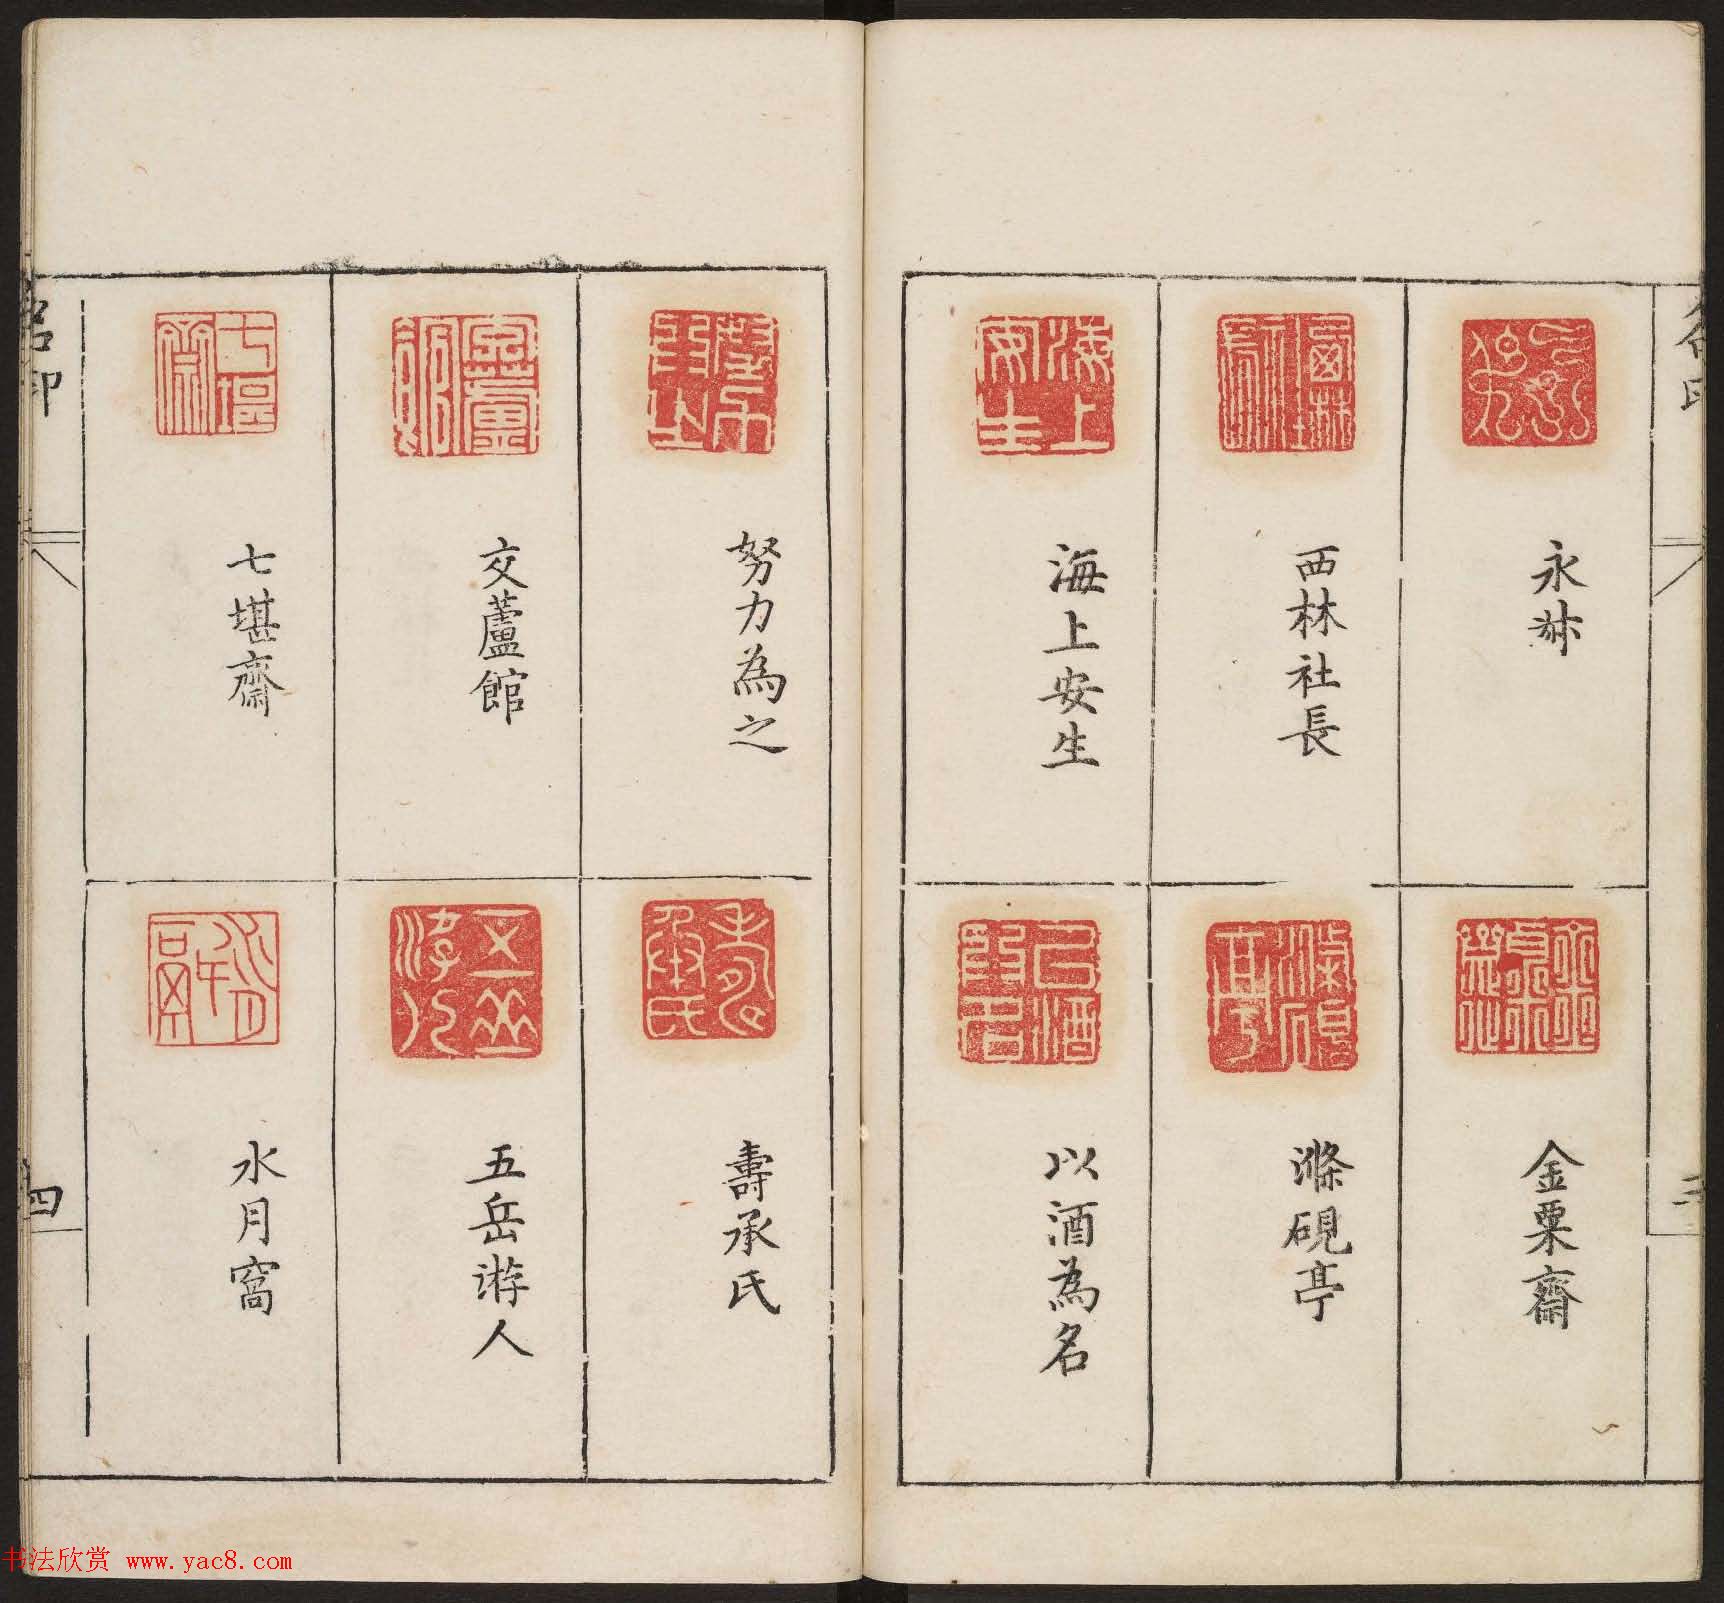 永𣏟
西林社長
海上安生
金粟齋
滌硯亭
以酒為名
三
努力為之
交蘆館
七堪齋
壽承氏
五岳游人
水月窩
名印
四
书法欣赏 www.yac8.com